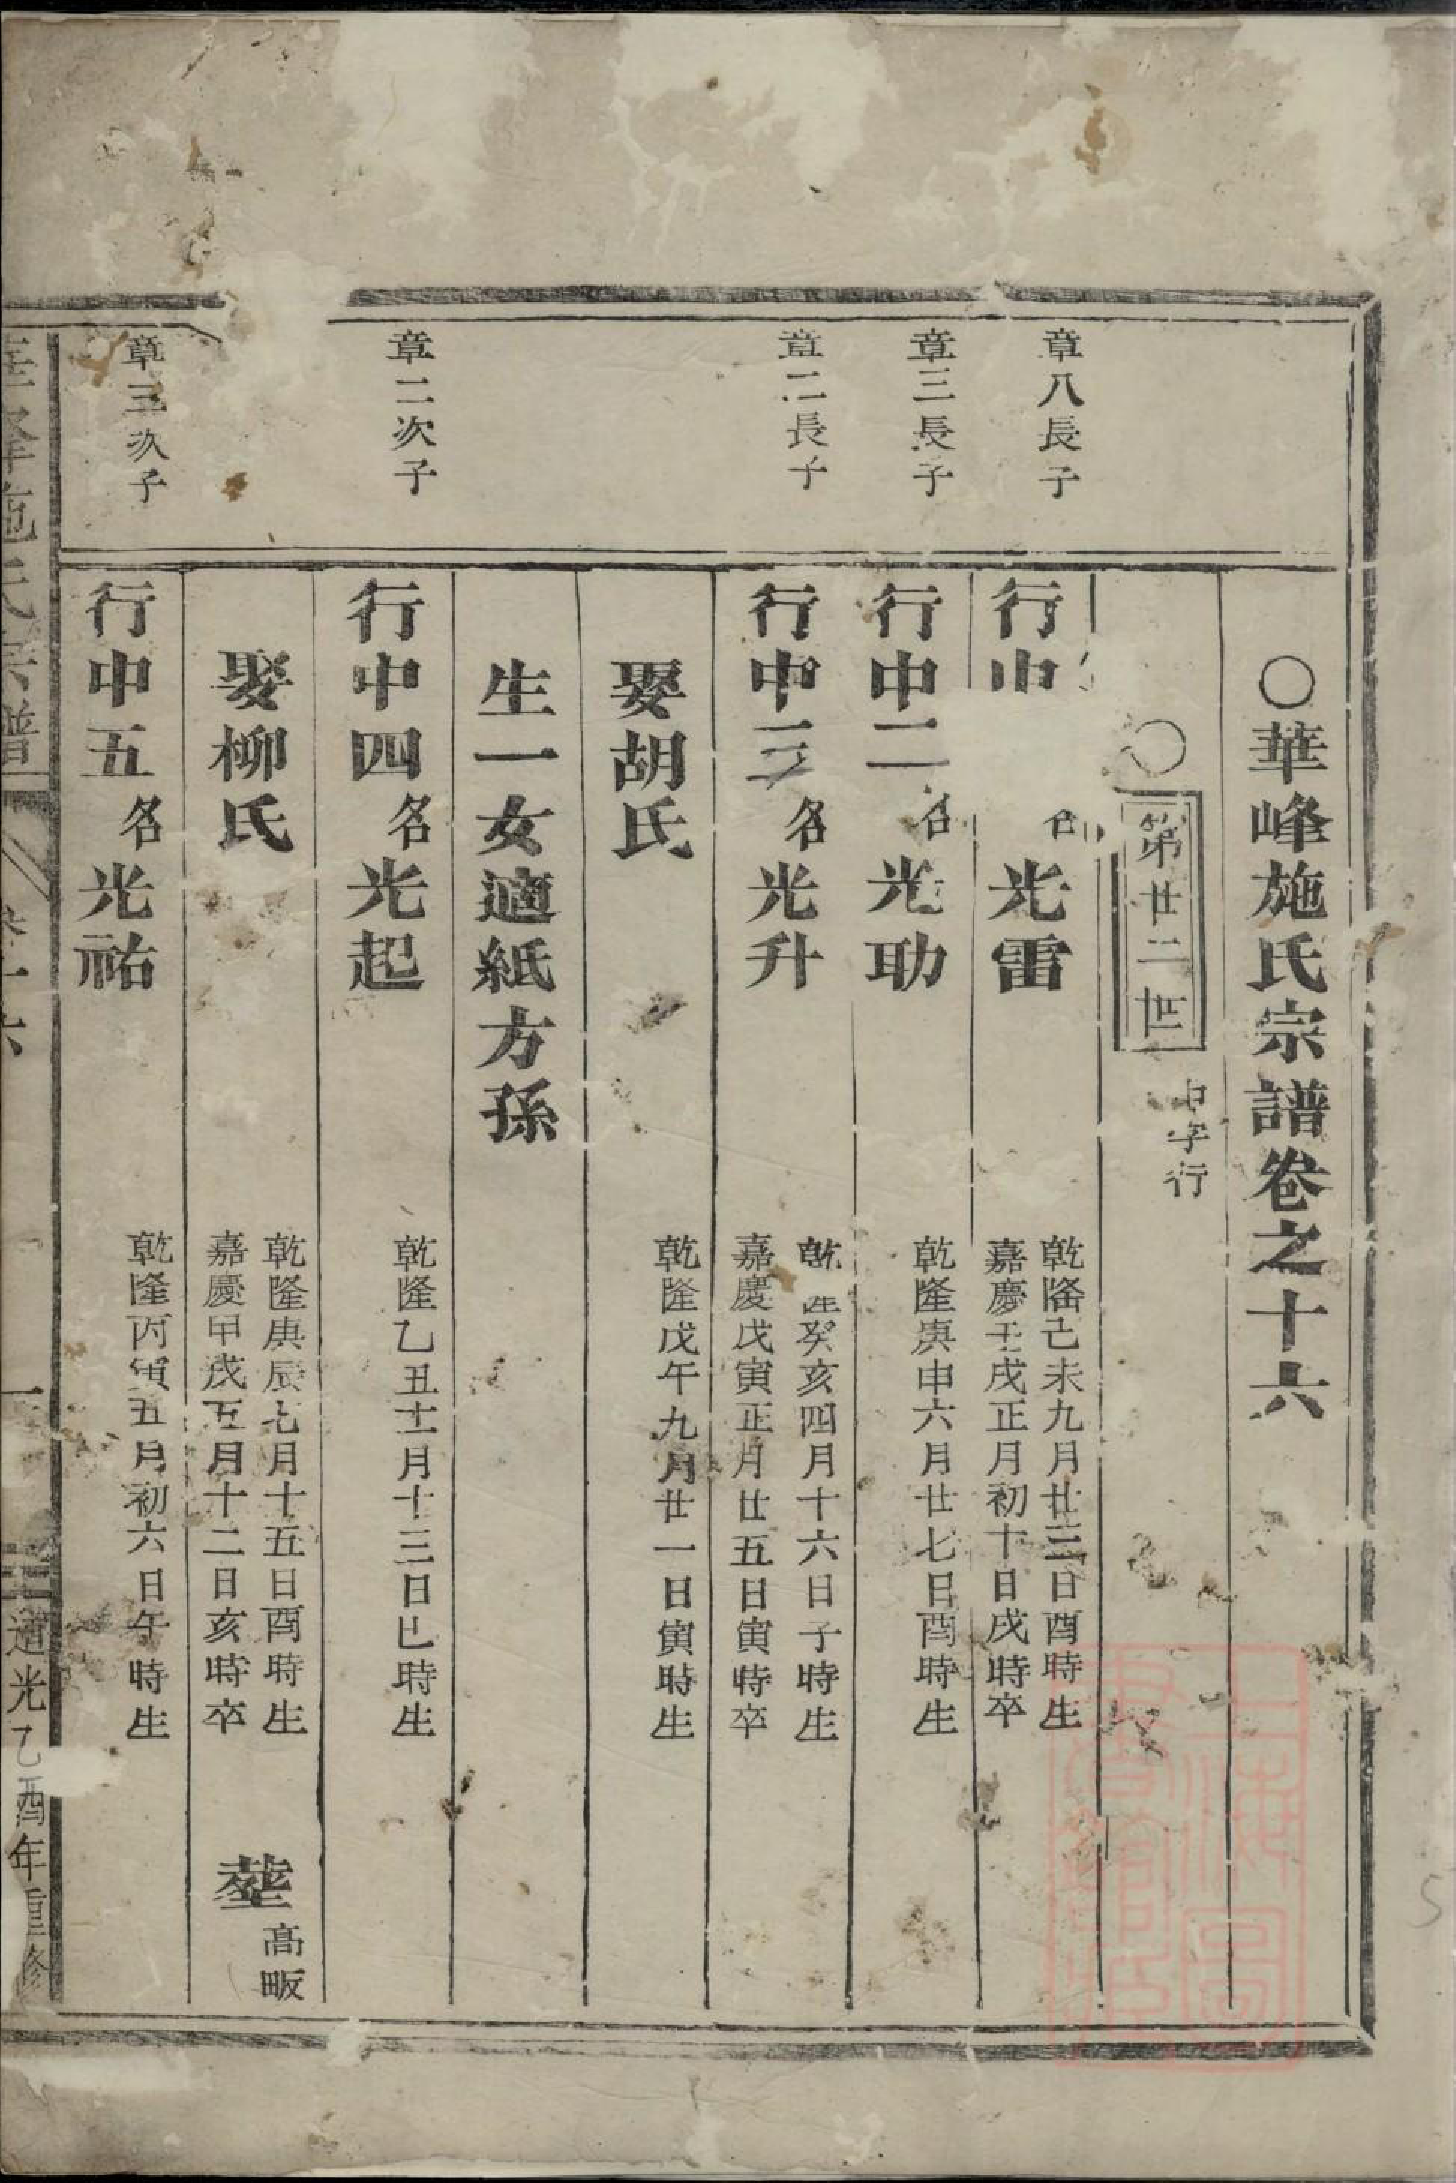 ○華峰施氏宗譜卷之十六
○第廿二世 中字行
章八長子
行中 名光雷 乾隆己未九月廿三日酉時生 嘉慶壬戌正月初十日戌時卒
章三長子
行中二名光助 乾隆庚申六月廿七日酉時生
章二長子
行中三名光升 乾隆癸亥四月十六日子時生 嘉慶戊寅正月廿五日寅時卒
娶胡氏 乾隆戊午九月廿一日寅時生
生一女適紙方孫
章二次子
行中四名光起 乾隆乙丑十一月十三日巳時生
娶柳氏 乾隆庚辰七月十五日酉時生 嘉慶甲戌五月十二日亥時卒 塟高畈
章三次子
行中五名光祐 乾隆丙寅五月初六日午時生
華峰施氏宗譜 卷十六 一 道光乙酉年重修
上海圖書館藏